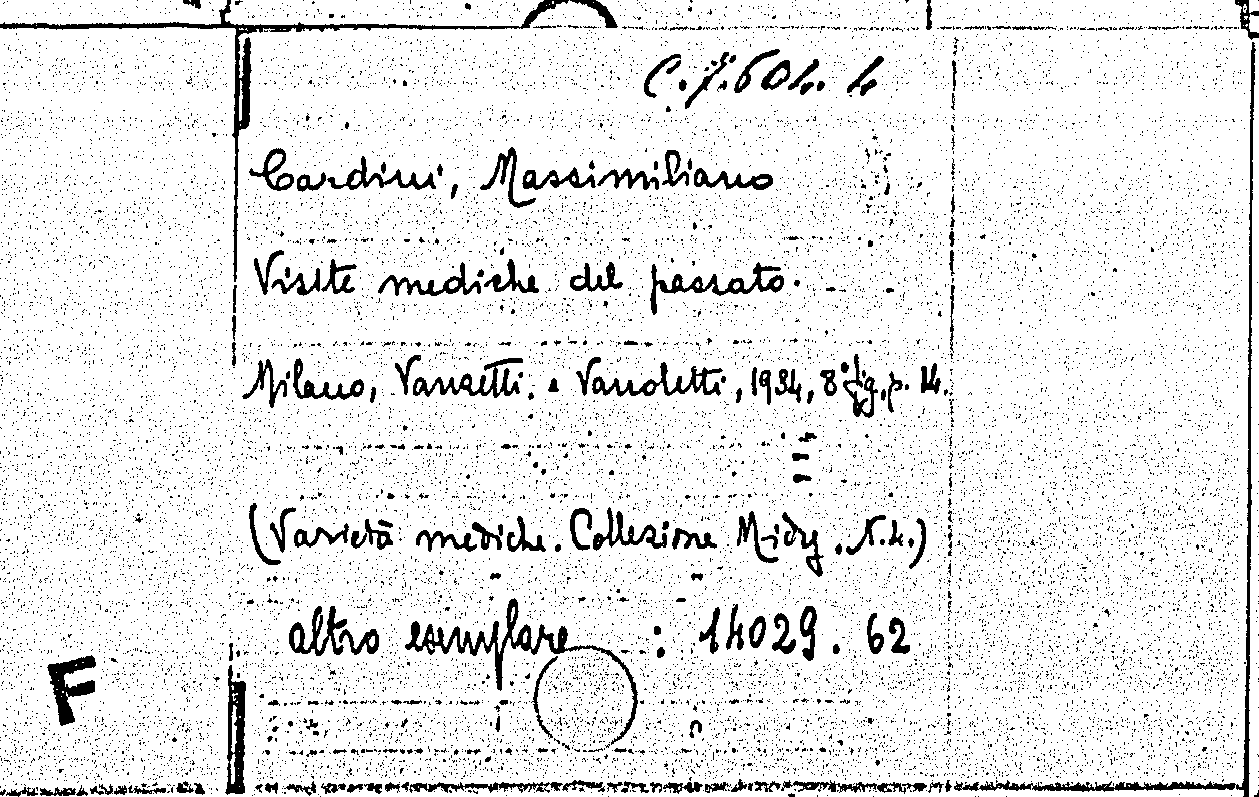 C. 7. 604. 4
Cardini, Massimiliano
Visite mediche del passato.
Milano, Vanzetti e Vanoletti, 1934, 8° fig. p. 14.
(Varietà mediche. Collezione Midy. N. 4.)
altro esemplare : 14029. 62
F